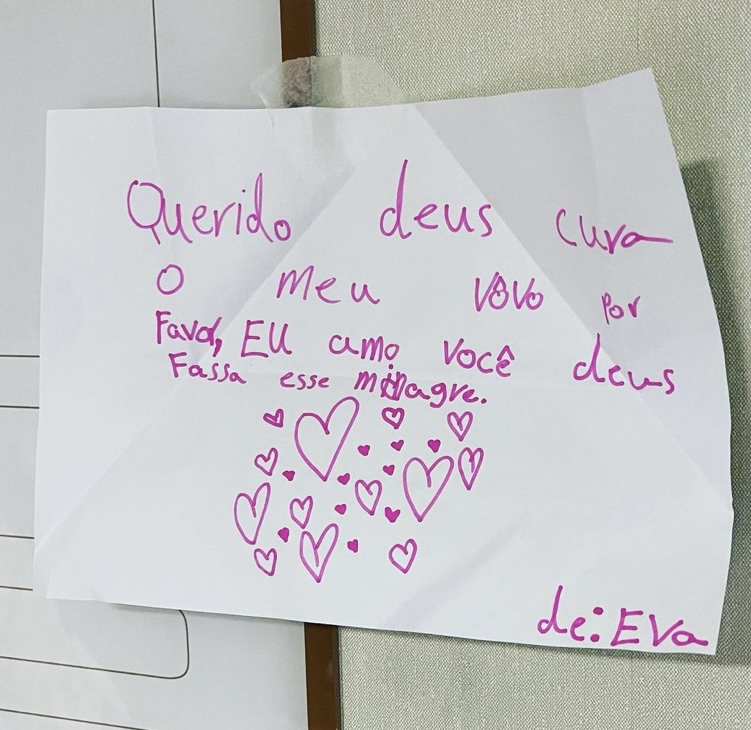 Querido deus cura
o meu vovo por
Favor, EU amo você deus
Fassa esse milagre.
de: EVa